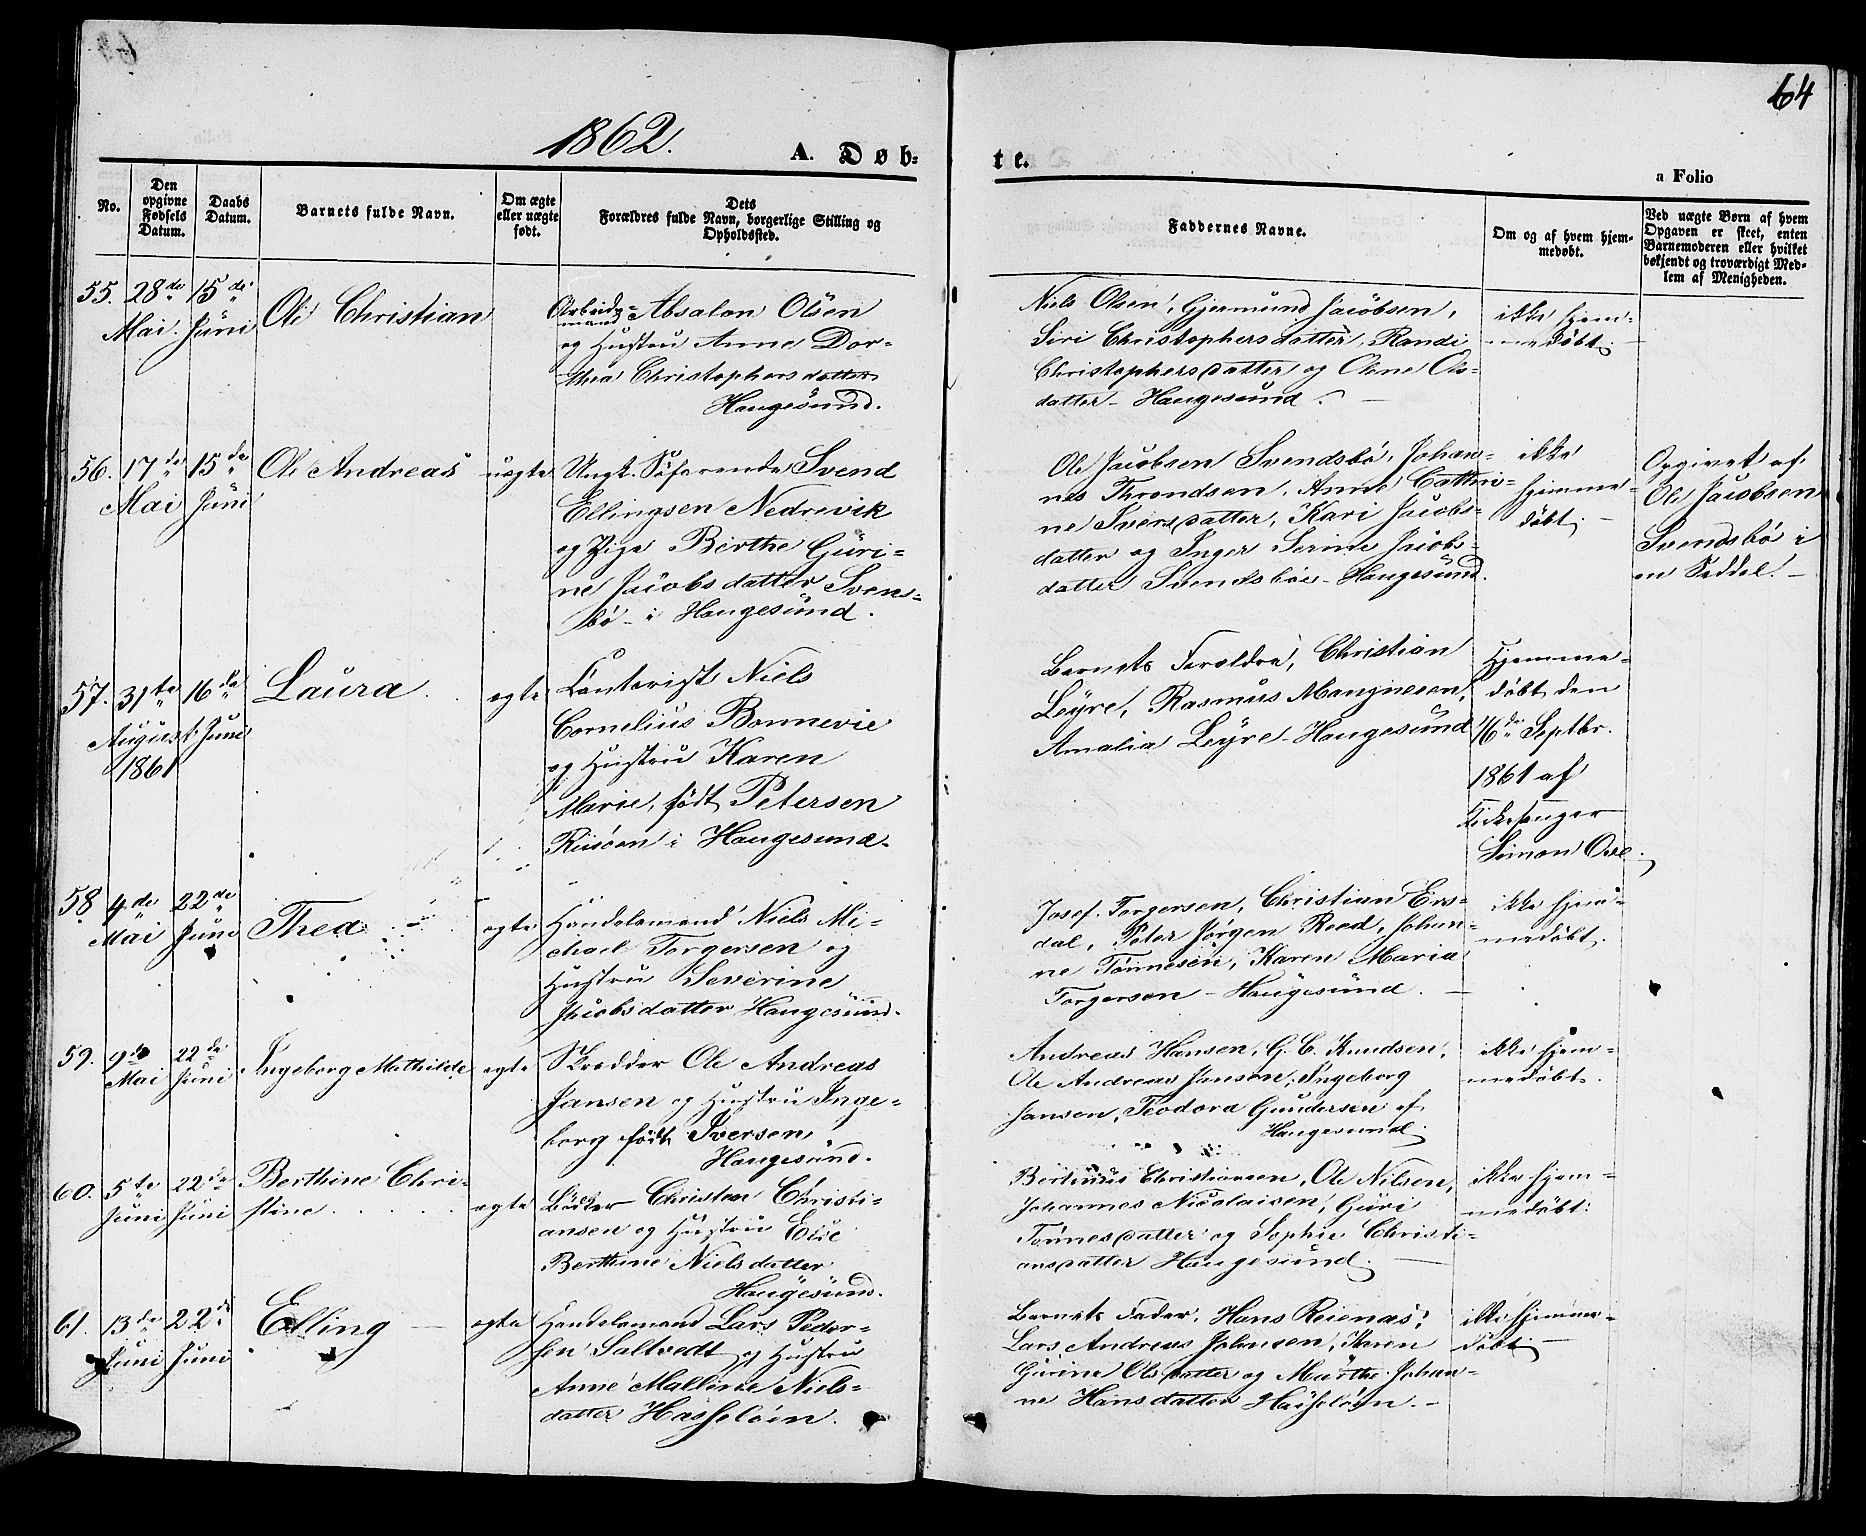 64
1862.
A. Døb-
te.
a Folio
No.
Den opgivne Fødsels Datum.
Daabs Datum.
Barnets fulde Navn.
Om ægte eller uægte født.
Dets Forældres fulde Navn, borgerlige Stilling og Opholdssted.
Faddernes Navne.
Om og af hvem hjem-
medøbt.
Ved uægte Børn af hvem
Opgaven er skeet, enten
Barnemoderen eller hvilket
bekjendt og troværdigt Med-
lem af Menigheden.
55. 28de Mai. 15de Juni
Ole Christian
Arbeids-
mand Absalon Olsen
og Hustru Anne Dor-
thea Christophersdatter
Haugesund.
Niels Olsen, Gjermund Jacobsen,
Siri Christophersdatter, Randi
Christophersdatter og Oline Ols-
datter - Haugesund.
ikke hjem-
medøbt.
56. 17de Mai 15de Juni
Ole Andreas
uægte
Ungk. Söfarende Svend
Ellingsen Nedrevik
og Pige Berthe Guri-
ne Jacobsdatter Svens-
bö - i Haugesund.
Ole Jacobsen Svendsbö, Johan-
nes Throndsen, Anne Cathri-
ne Iversdatter, Kari Jacobs-
datter og Inger Serine Jacobs-
datter Svendsböe - Haugesund.
ikke
hjemme-
döbt. -
Opgivet af
Ole Jacobsen
Svendsbö i
en Seddel. -
57. 31te August 1861 16de Juni
Laura.
egte
Contorist Niels
Cornelius Bonnevie
og Hustru Karen
Marie, födt Petersen
Risöen i Haugesund.
Barnets Forældre, Christian
Leyre, Rasmus Mangnesen,
Amalia Leyre - Haugesund
Hjemme-
döbt den
16de Septbr.
1861 af
Kirkesanger
Simon Ove.
58 4de Mai 22de Juni
Thea
egte
Handelsmand Niels Mi-
chael Torgersen og
Hustru Severine
Jacobsdatter Haugesund.
Josef Torgersen, Christian Ers-
dal, Peter Jörgen Roed, Johan-
ne Tönnesen, Karen Maria
Torgersen - Haugesund.
ikke hjem-
medöbt.
59. 9de Mai 22de Juni
Ingeborg Mathilde
egte
Skredder Ole Andreas
Jansen og Hustru Inge-
borg födt Iversen,
Haugesund.
Andreas Hansen, G. C. Knudsen,
Ole Andreas Janson, Ingeborg
Jansen, Teodora Gundersen af
Haugesund.
ikke hjem-
medöbt.
60. 5te Juni 22de Juni
Berthine Chri-
stine
egte
Christen Christi-
ansen og Hustru Else
Berthine Nielsdatter
Haugesund.
Bertinus Christiansen, Ole Nilsen,
Johannes Nicolaisen, Guri
Tönnesdatter og Sophie Christi-
ansdatter Haugesund.
ikke hjem-
medöbt.
61. 13de Juni 22de Juni
Elling
egte
Handelsmand Lars Peder-
sen Saltvedt og Hustru
Anne Mallene Niels-
datter Hasselöen.
Barnets Fader, Hans Reienas,
Lars Andreas Johnsen, Karen
Gurine Olsdatter og Marthe Johan-
ne Hansdatter Hasselöen. -
ikke hjemme-
döbt.